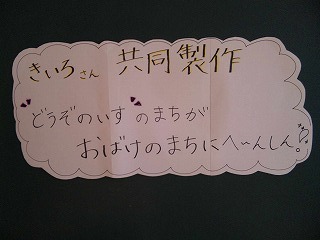 きいろさん 共同製作
どうぞのいす のまちが
おばけのまちにへ～んしん。